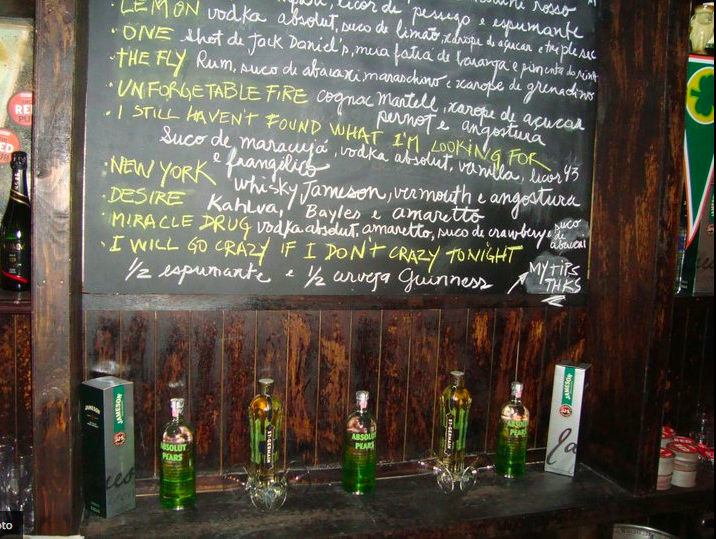 licor de pessego e espumante
LEMON vodka absolut, suco de limão, xarope de açucar e triple sec
• ONE shot de Jack Daniel's, meia fatia de laranja e pimenta do reino
• THE FLY Rum, suco de abacaxi maraschino e xarope de grenadine
• UNFORGETABLE FIRE cognac Martell, xarope de açucar
pernot e angostura
• I STILL HAVEN'T FOUND WHAT I'M LOOKING FOR
Suco de maracujá, vodka absolut, vanilla, licor 43
e frangilico
• NEW YORK whisky Jameson, vermouth e angostura
DESIRE Kahlva, Bayles e amaretto
• MIRACLE DRUG vodka absolut, amaretto, suco de cranbery e suco de abacaxi
• I WILL GO CRAZY IF I DON'T CRAZY TONIGHT
1/2 espumante e 1/2 cerveja Guinness
MY TITS
THKS
JAMESON
ABSOLUT
PEARS
ST-GERMAIN
ABSOLUT
PEARS
ST-GERMAIN
ABSOLUT
PEARS
JAMESON
RED